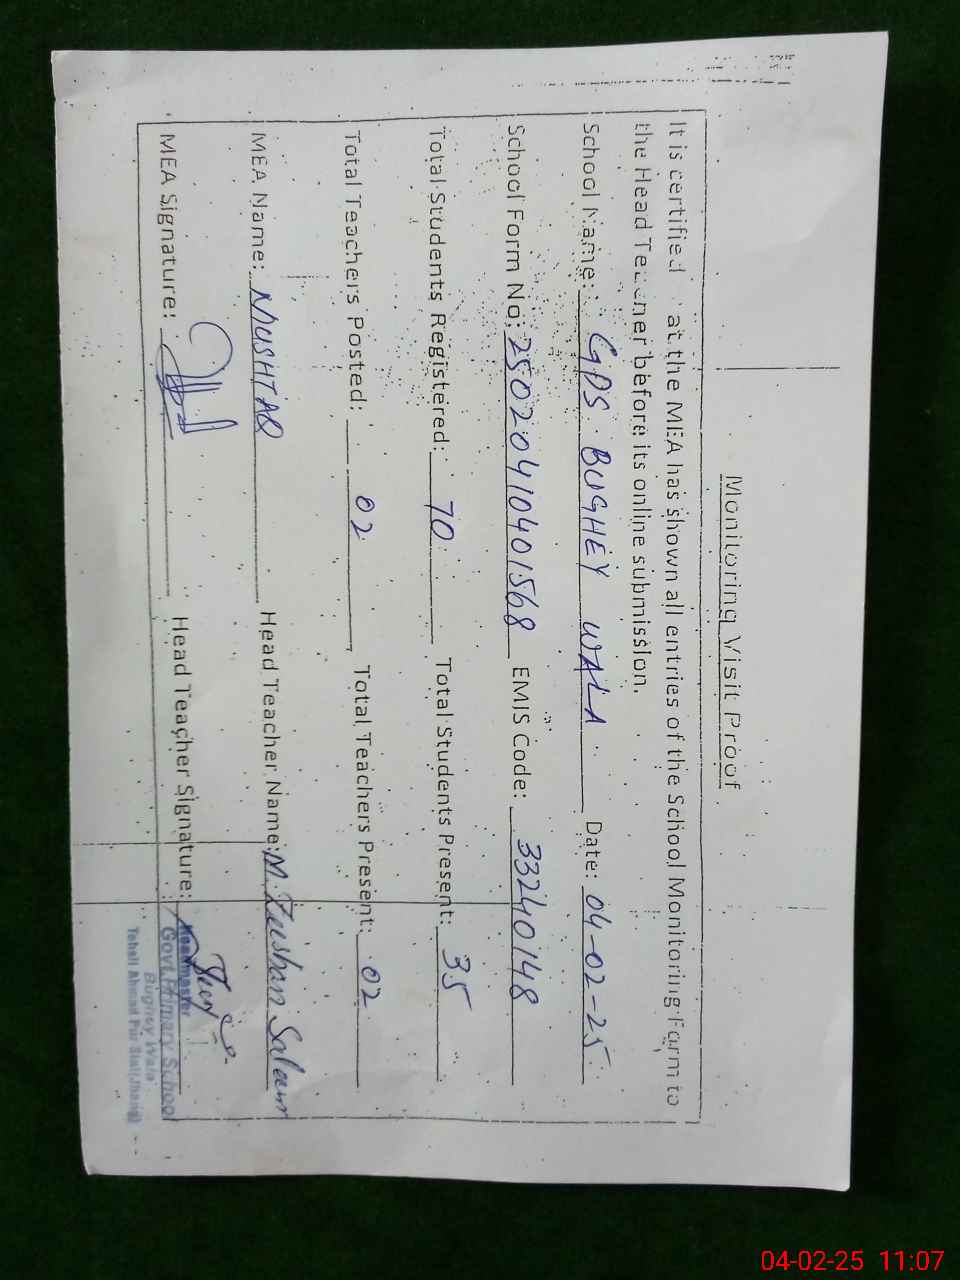 Monitoring Visit Proof
It is certified at the MEA has shown all entries of the School Monitoring Form to
the Head Teacher before its online submission.
School Name: GPS BUGHEY WALA Date: 04-02-25
School Form No: 25020410401568 EMIS Code: 33240148
Total Students Registered: 70 Total Students Present: 35
Total Teachers Posted: 02 Total Teachers Present: 02
MEA Name: MUSHTAQ Head Teacher Name: M. Zeeshan Saleem
MEA Signature: Head Teacher Signature:
Headmaster
Govt. Primary School
Bughey Wala
Tehsil Ahmad Pur Sial (Jhang)
04-02-25 11:07